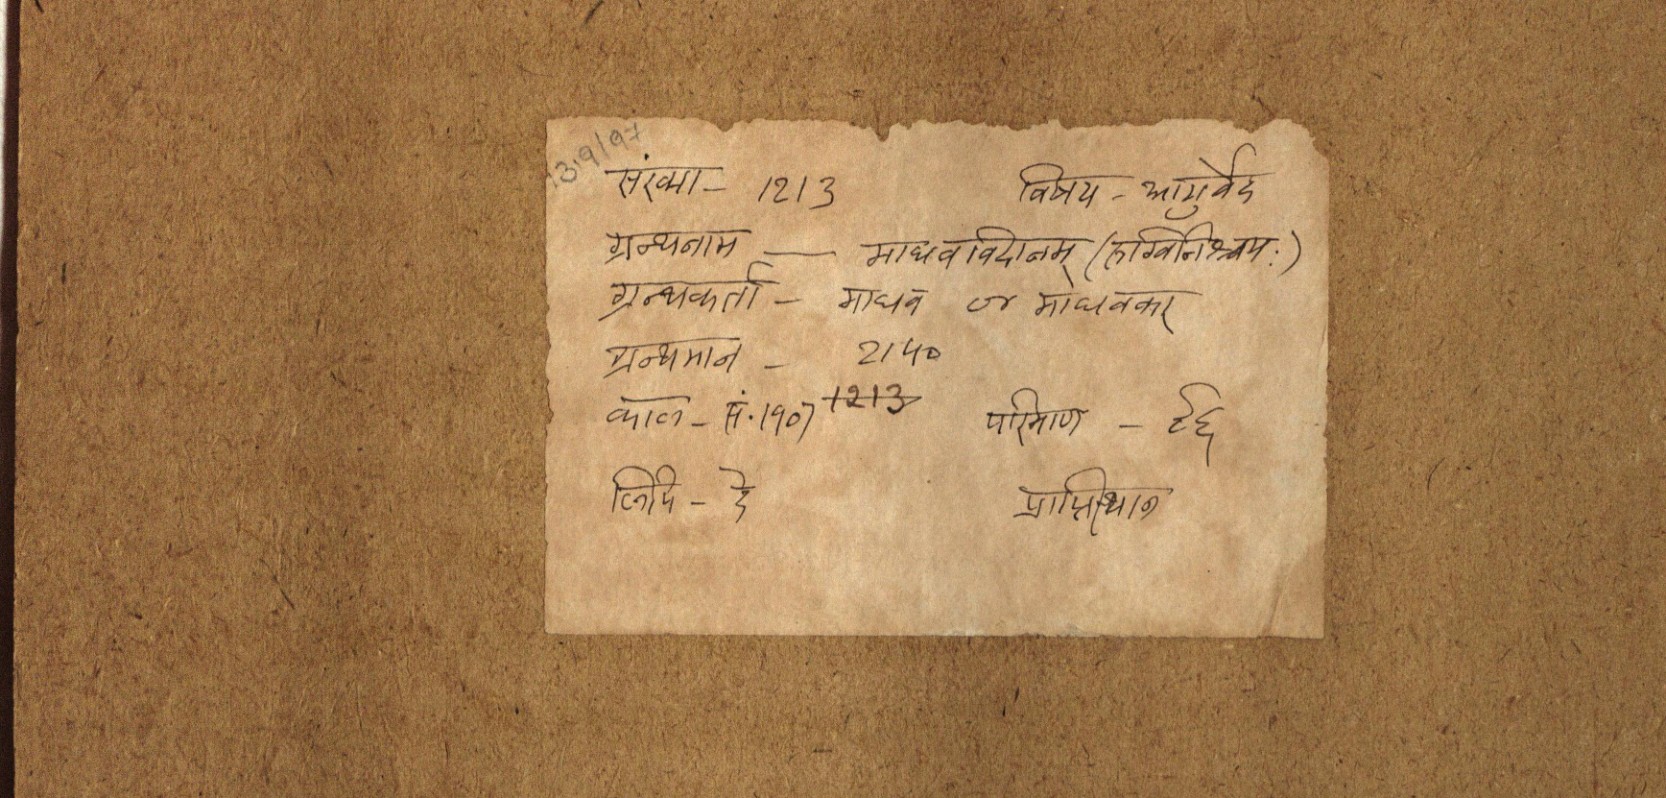 13/9/97
संख्या - 1213 विषय - आयुर्वेद
ग्रन्थनाम — माधवनिदानम् (रुग्विनिश्चयः)
ग्रन्थकर्ता - माधव or माधवकर
ग्रन्थमान - 2140
काल - सं. 1907 1213 परिमाण -
लिपि - दे प्राप्तिस्थान